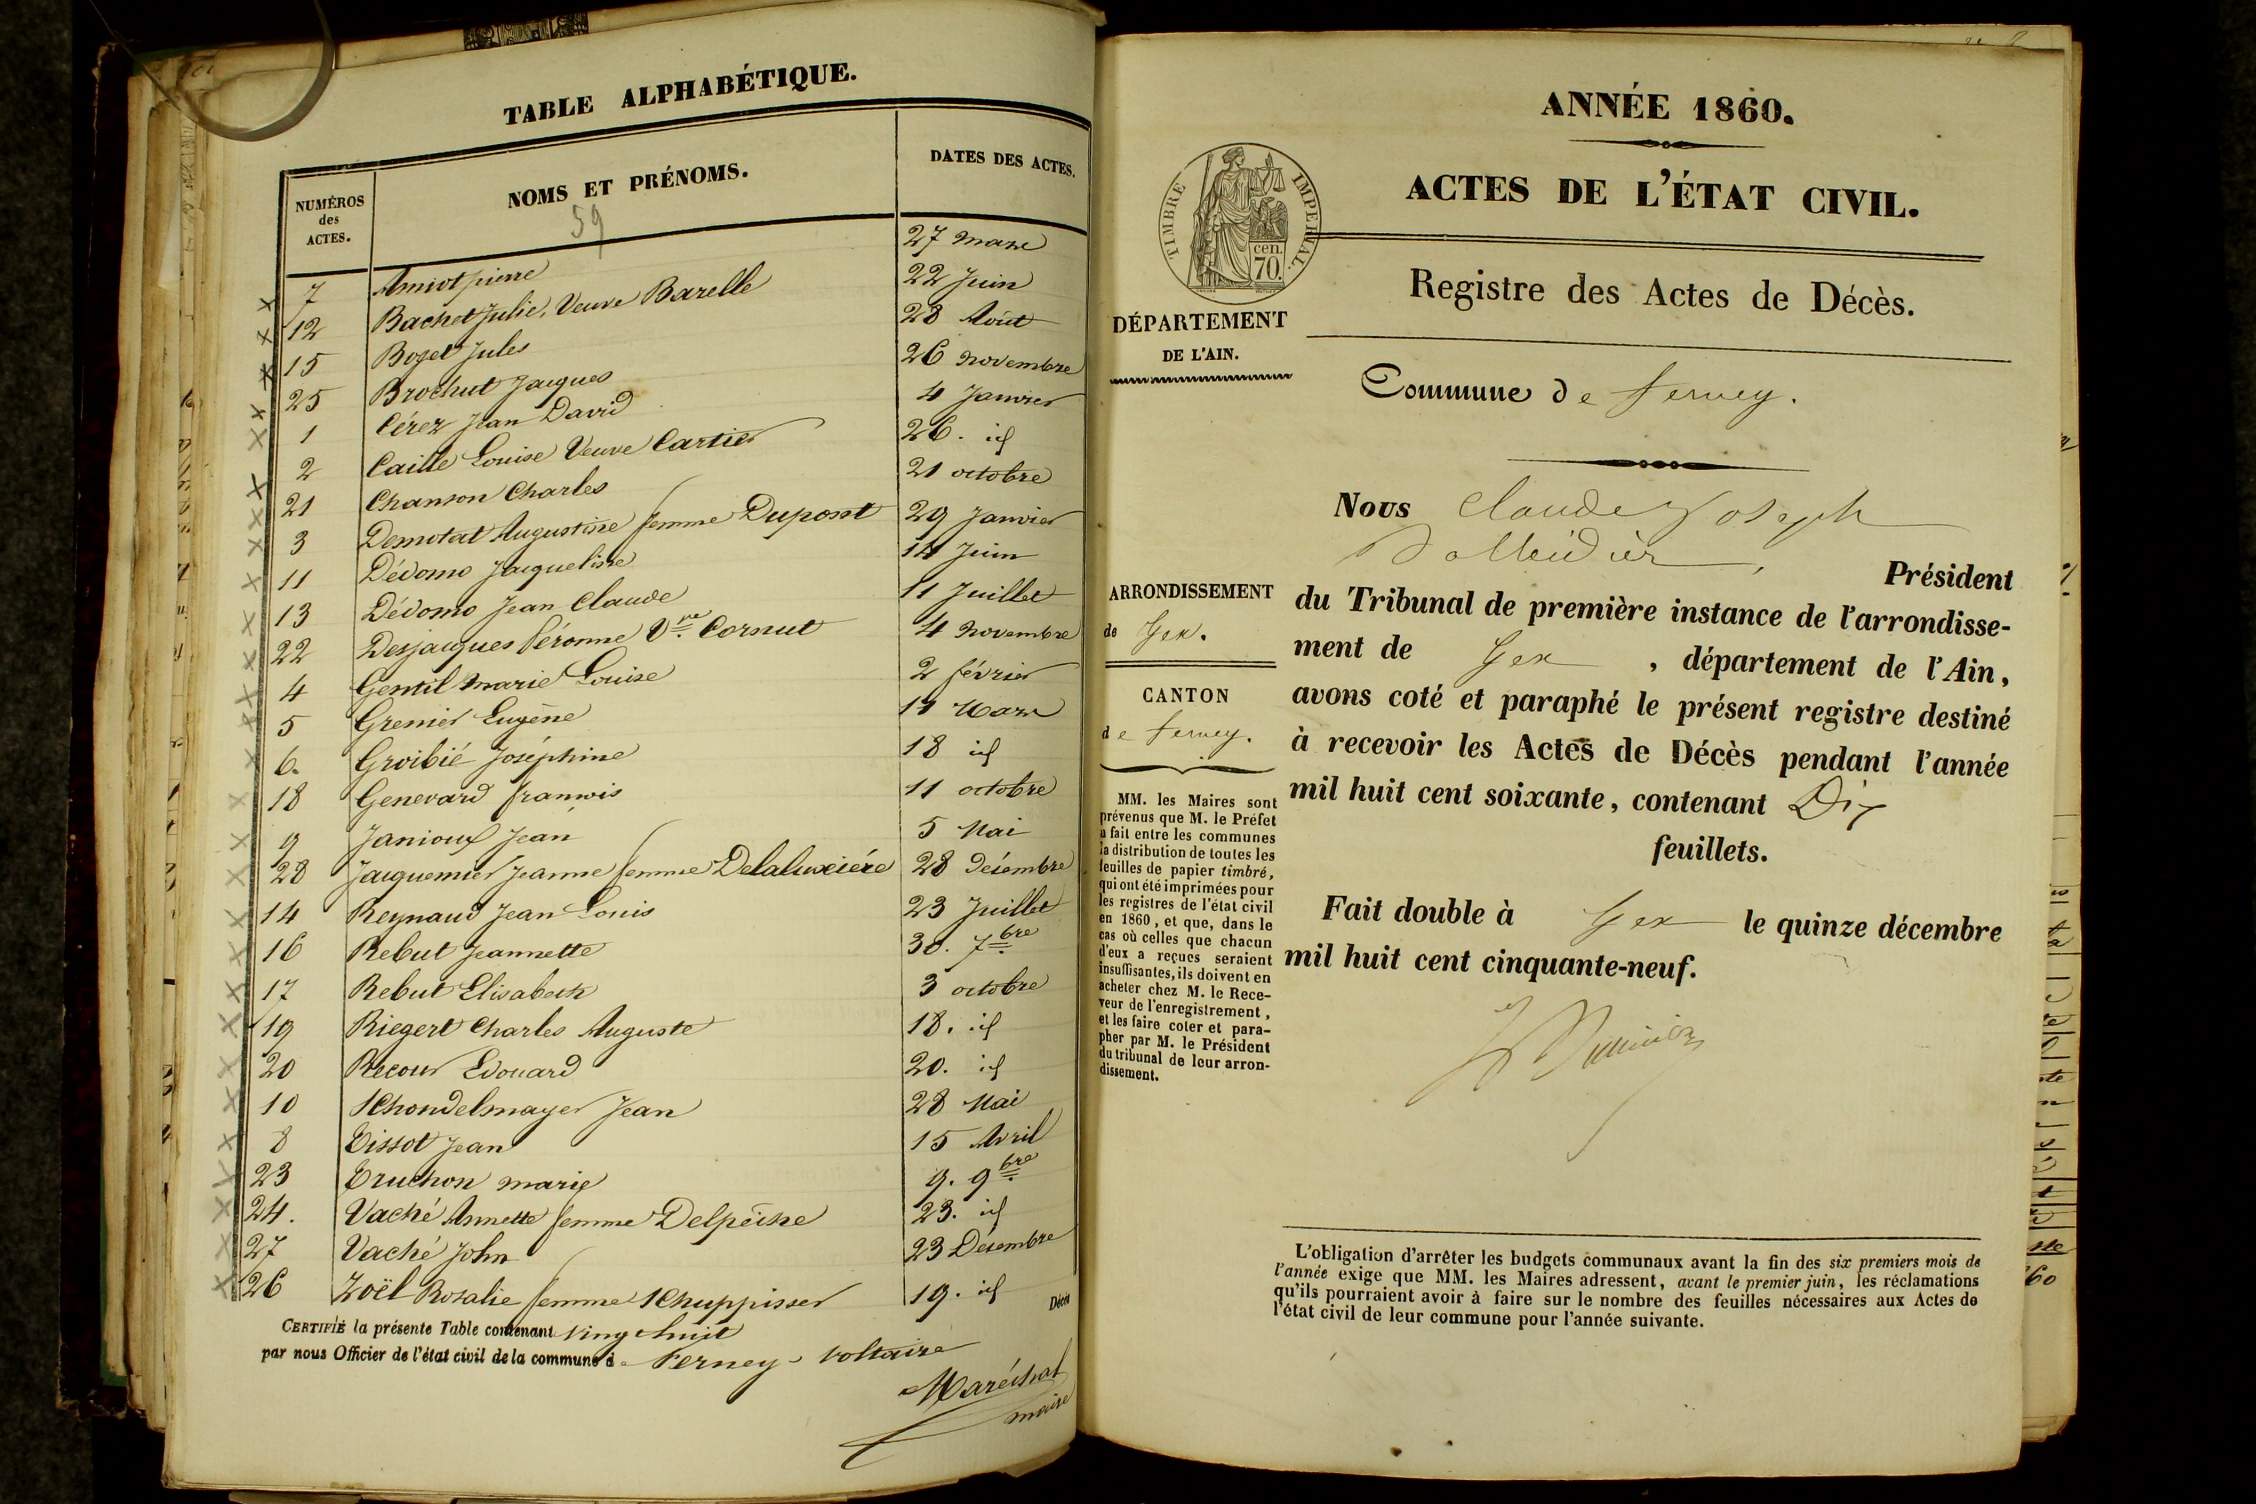 TABLE ALPHABÉTIQUE.
NUMÉROS des ACTES. NOMS ET PRÉNOMS. DATES DES ACTES.
59
7 Amiot pierre 27 mars
12 Bachet Julie, Veuve Barelle 22 Juin
15 Bozet Jules 28 Août
25 Brochut Jacques 26 novembre
1 Cérez Jean David 4 Janvier
2 Caille Louise Veuve Cartier 26. id
21 Chanson Charles 21 octobre
3 Demotat Augustine femme Dupont 29 Janvier
11 Dédomo Jacqueline 14 Juin
13 Dédomo Jean Claude 11 Juillet
22 Desjacques Péronne Vve. Cornut 4 novembre
4 Gentil marie Louise 2 février
5 Grenier Eugène 11 Mars
6. Groibié Joséphine 18 id
18 Genevard francois 11 octobre
9 Janioux Jean 5 Mai
28 Jacquemier Jeanne femme 28 Désembre
14 Reynaud Jean Louis 23 Juillet
16 Rebut Jeannette 30. 7bre
17 Rebut Elisabeth 3 octobre
19 Riegert Charles Auguste 18. id
20 Recour Edouard 20. id
10 Schondelmayer Jean 28 Mai
8 Tissot Jean 15 Avril
23 Truchon marie 9. 9bre
24. Vaché Annette femme Delpêche 23. id
27 Vaché John 23 Désembre
26 Zoël Rosalie femme Schuppisser 19. id
Décès
CERTIFIÉ la présente Table contenant Vingt huit
par nous Officier de l'état civil de la commune de Ferney-Voltaire
Maréchal
maire
ANNÉE 1860.
ACTES DE L'ÉTAT CIVIL.
TIMBRE IMPERIAL.
cen.
70.
Registre des Actes de Décès.
DÉPARTEMENT
DE L'AIN.
Commune de ferney.
Nous Claude Joseph
Président
du Tribunal de première instance de l'arrondisse-
ment de Gex, département de l'Ain,
avons coté et paraphé le présent registre destiné
à recevoir les Actes de Décès pendant l'année
mil huit cent soixante, contenant Dix
feuillets.
Fait double à Gex le quinze décembre
mil huit cent cinquante-neuf.
ARRONDISSEMENT
de Gex.
CANTON
de ferney.
MM. les Maires sont
prévenus que M. le Préfet
a fait entre les communes
la distribution de toutes les
feuilles de papier timbré,
qui ont été imprimées pour
les registres de l'état civil
en 1860, et que, dans le
cas où celles que chacun
d'eux a reçues seraient
insuffisantes, ils doivent en
acheter chez M. le Rece-
veur de l'enregistrement,
et les faire coter et para-
pher par M. le Président
du tribunal de leur arron-
dissement.
L'obligation d'arrêter les budgets communaux avant la fin des six premiers mois de
l'année exige que MM. les Maires adressent, avant le premier juin, les réclamations
qu'ils pourraient avoir à faire sur le nombre des feuilles nécessaires aux Actes de
l'état civil de leur commune pour l'année suivante.